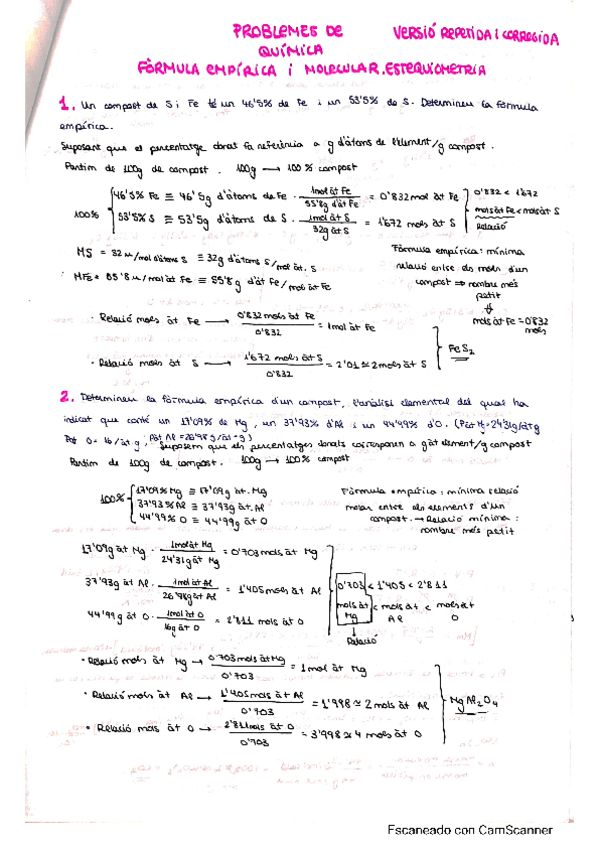 PROBLEMES DE QUÍMICA
VERSIÓ REPETIDA I CORREGIDA
FÒRMULA EMPÍRICA I MOLECULAR. ESTEQUIOMETRIA
1. Un compost de S i Fe té un 46'5% de Fe i un 53'5% de S. Determineu la fórmula
empírica.
Suposant que el percentatge donat fa referència a g d'àtoms de l'element/g compost.
Partim de 100g de compost. 100g → 100% compost
100% { 46'5% Fe ≡ 46'5g d'àtoms de Fe · 1mol àt Fe / 55'8g d'àt Fe = 0'832 mol àt Fe
53'5% S ≡ 53'5g d'àtoms de S · 1mol àt S / 32g àt S = 1'672 mols àt S
0'832 < 1'672
mols àt Fe < mols àt S
Relació
MS = 32 u/mol d'àtoms S ≡ 32g d'àtoms S/mol àt. S
MFe = 55'8 u/mol àt Fe ≡ 55'8 g d'àt Fe/mol àt Fe
Fòrmula empírica: mínima
relació entre els mols d'un
compost ⇒ nombre més
petit
mols àt Fe = 0'832
mols
· Relació mols àt Fe → 0'832 mols àt Fe / 0'832 = 1mol àt Fe
· Relació mols àt S → 1'672 mols àt S / 0'832 = 2'01 ≃ 2 mols àt S
FeS2
2. Determineu la fòrmula empírica d'un compost, l'anàlisi elemental del qual ha
indicat que conté un 17'09% de Mg, un 37'93% d'Al i un 44'99% d'O. (Pàt Mg = 24'31g/àtg
Pàt O = 16/àt g, Pàt Al = 26'98g/àt-g)
Suposem que els percentatges donats corresponen a g àt element/g compost
Partim de 100g de compost. 100g → 100% compost
100% { 17'09% Mg ≡ 17'09g àt. Mg
37'93% Al ≡ 37'93g àt. Al
44'99% O ≡ 44'99g àt O
Fòrmula empírica: mínima relació
molar entre els elements d'un
compost. → Relació mínima:
nombre més petit
17'09g àt Mg · 1mol àt Mg / 24'31g àt Mg = 0'703 mols àt Mg
37'93g àt Al · 1mol àt Al / 26'98g àt Al = 1'405 mols àt Al
44'99g àt O · 1mol àt O / 16g àt O = 2'811 mols àt O
0'703 < 1'405 < 2'811
mols àt Mg < mols àt Al < mols àt O
Relació
· Relació mols àt Mg → 0'703 mols àt Mg / 0'703 = 1 mol àt Mg
· Relació mols àt Al → 1'405 mols àt Al / 0'703 = 1'998 ≃ 2 mols àt Al
· Relació mols àt O → 2'811 mols àt O / 0'703 = 3'998 ≃ 4 mols àt O
MgAl2O4
Escaneado con CamScanner